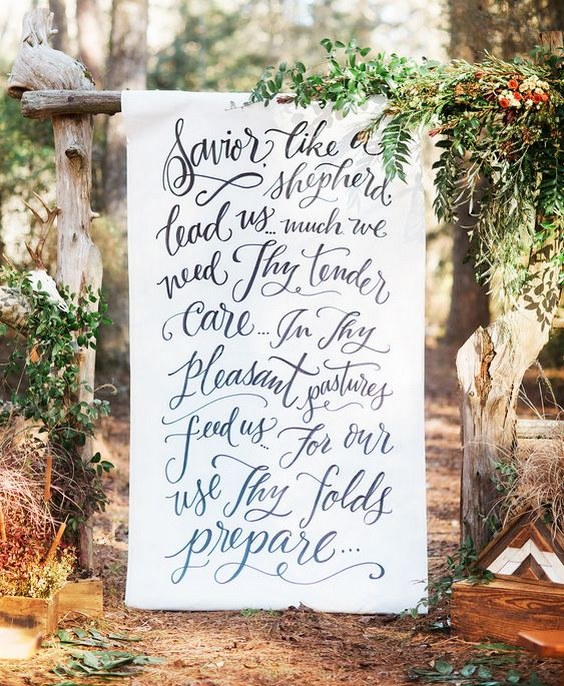 Savior, like a
shepherd,
lead us... much we
need Thy tender
care... In Thy
pleasant pastures
feed us... For our
use Thy folds
prepare...